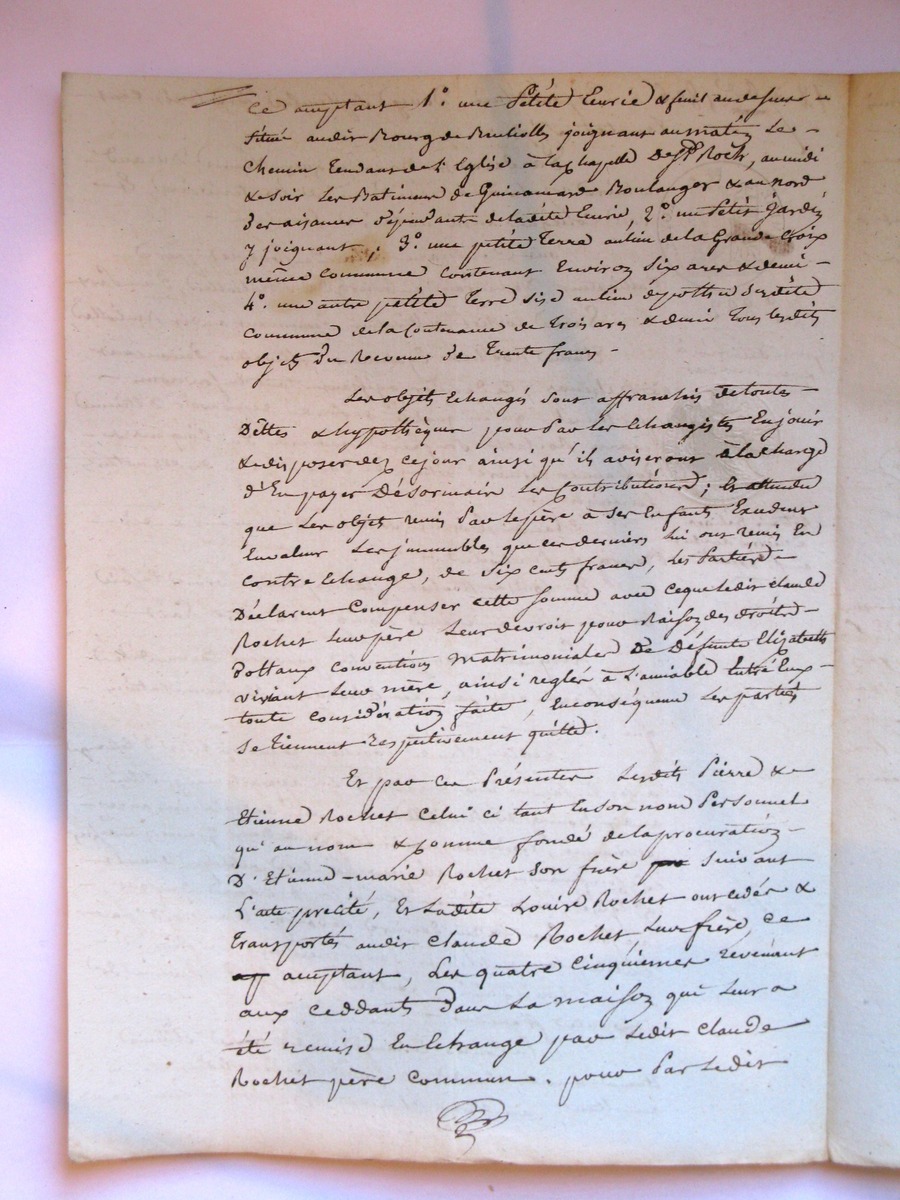 ce acceptant 1° une Petite Ecurie & fenil au dessus
situé audit Bourg de joignant au matin Le
chemin Tendant de L'Eglise à la chapelle De St Roch, au midi
& soir Les Batimens de Boulanger & au nord
des aisances dépendantes de ladite Ecurie, 2° un Petit Jardin
y joignant, 3° une petite Terre au lieu de la Grande Croix
même Commune contenant Environ Six ares & demi
4° une autre petite Terre sise au lieu susdite
Commune de la Contenance de Trois ares & demi Tous lesdits
objets du Revenu de Trente francs
Les objets Echangés sont affranchis de toutes
Dettes & hypothèques pour Par les Echangistes En jouir
& disposer dez ce jour ainsi qu'ils aviseront à la charge
d'En payer Désormais Les Contributions ; Et attendu
que Les objets remis Par le père à ses Enfants Excedent
En valeur Les immeubles que ces derniers lui ont remis En
Contre Echange, de Six cents francs, Les Parties
Déclarent Compenser cette somme avec ce que ledit Claude
Rochet leur père Leur devroit pour Raison des droits
Dottaux Conventions matrimoniales De Défunte Elizabeth
vivant leur mère, ainsi reglés à L'amiable Entre Eux
toute considération faite, En conséquence Les parties
se Tiennent respectivement quittes.
Et par ces Présentes Lesdits Pierre &
Etienne Rochet celui ci tant En son nom Personnel
qu'au nom & comme fondé de la procuration
D'Etienne-marie Rochet son frère suivant
L'acte précité, Et Ladite Louise Rochet ont cédés &
Transportés audit Claude Rochet Leur frère, ce
acceptant, Les quatre cinquiemes revenant
aux ceddants Dans La maison qui leur a
été remise En Echange par Ledit Claude
Rochet père commun. pour Par Ledit